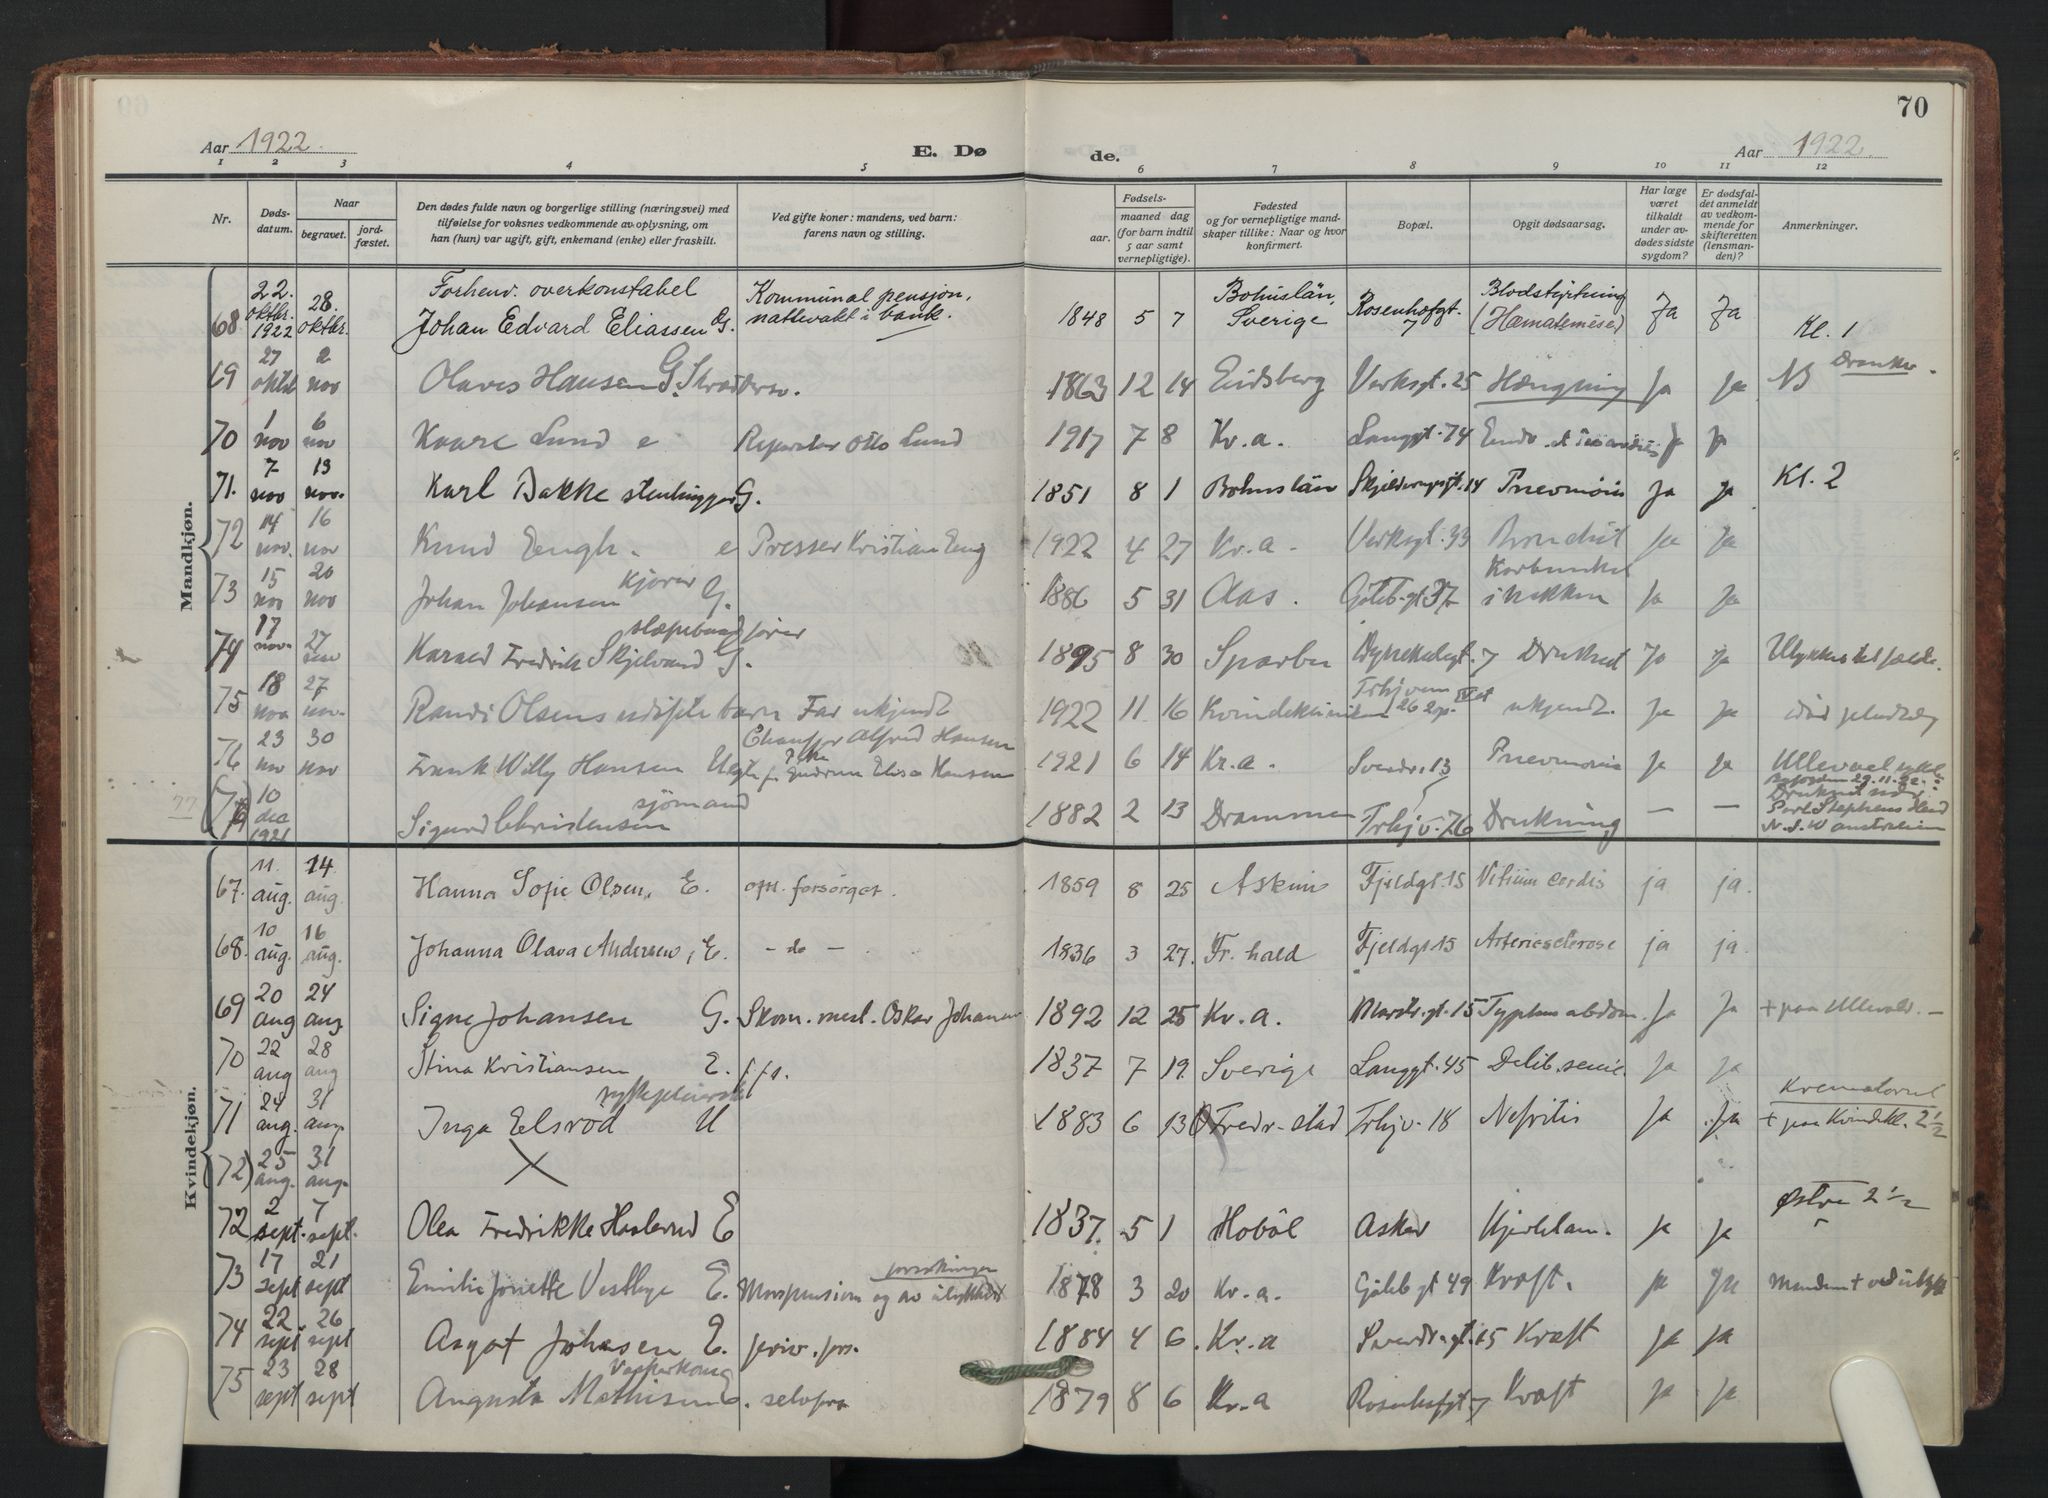 70
Aar 1922. E. Døde. Aar 1922.
1 2 3 4 5 6 7 8 9 10 11 12
Nr. Dødsdatum. Naar begravet. jordfæstet. Den dødes fulde navn og borgerlige stilling (næringsvei) med tilføielse for voksnes vedkommende av oplysning, om han (hun) var ugift, gift, enkemand (enke) eller fraskilt. Ved gifte koner: mandens, ved barn: farens navn og stilling. Fødsels- aar. maaned dag (for barn indtil 5 aar samt vernepligtige). Fødested og for vernepligtige mandskaper tillike: Naar og hvor konfirmert. Bopæl. Opgit dødsaarsag. Har læge været tilkaldt under avdødes sidste sygdom? Er dødsfaldet anmeldt av vedkommende for skifteretten (lensmanden)? Anmerkninger.
Mandkjøn.
68 22. oktbr. 1922 28. oktbr. Forhenv. overkonstabel Johan Edvard Eliassen G. Kommunal pensjon, nattevakt i bank. 1848 5 7 Bohuslän, Sverige Rosenhofgt. 7 Blodstyrtning (Hæmatemese) Ja Ja Kl. 1
69 27 oktbr 2 nov Olaves Hansen G. Skrædersv. 1863 12 14 Eidsberg Verksgt. 25 Hængning Ja Ja NB Dranker.
70 1 nov 6 nov Kaare Lund e Reparatør Otto Lund 1917 7 8 Kr.a. Langgt. 74 Ja Ja
71. 7 nov 13 nov. Karl Bakke stenhugger G. 1851 8 1 Bohuslän 14 Pnevmoni Ja Ja Kl. 2
72 14 nov. 16 nov Knud Eengh. e Presser Kristian Eng 1922 4 27 Kr.a. Verksgt. 33 Bronchit Ja Ja
73 15 nov 20 nov Johan Johansen kjører G. 1886 5 31 Aas. Göteb.gt 37 Karbunkel i nakken Ja Ja
74 17 nov. 27 nov Harald Fredrik Skjelvand G. slæpebaadfører 1895 8 30 Sparbu 7 Druknet Ja Ja Ulykkestilfælde.
75 18 nov 27 nov. Randi Olsens udøpte barn Far ukjendt 1922 11 16 Kvindeklinikken Trhjvem 26 ukjendt. Ja Ja død pludselig
76 23 nov 30 nov Frank Willy Hansen Uegte Chauffør Alfred Hansen Gudrun Elise Hansen 1921 6 14 Kr.a. Sverdr. 13 Pnevmoni Ja Ja Ullevaal
77 10 dec 1921 Sigurd Christensen sjömand 1882 2 13 Drammen Trhjv. 26 Drukning — — Druknet ved Port Stephens Head N.S.W australien
Kvindekjøn.
67. 11. aug. 14 aug. Hanna Sofie Olsen, E. off. forsørget. 1859 8 25 Askim Fjeldgt. 15 Vitium cordis ja ja.
68. 10 aug. 16 aug. Johanna Olava Andersen, E. - do - 1836 3 27. Fr.hald Fjeldgt 15 Arteriosclerose ja ja.
69 20 aug 24 aug. Signe Johansen G. Skom. mest. Oskar Johansen 1892 12 25 Kr.a. 15 Typhus abdom. Ja Ja + paa Ullevold. —
70 22 aug 28 aug Stina Kristiansen E. 1837 7 19. Sverige Langgt. 45 Debil. senil. Ja Ja
71 24 aug. 31 aug. Inga Elsrod sykepleierske U 1883 6 13 Fredr-stad Trhjv. 18 Nefritis Ja Ja Krematoriet + paa Kvindekl. 2 1/2
(72) 25 aug. 31 aug. X
72 2 sept. 7 sept. Olea Fredrikke Haslerud E 1837. 5 1 Hobøl Asker Hjertelam. Ja Ja Østre 2 1/2
73 17 sept 21 sept Emilie Josette Vestbye E. Morspension og av ulykkes forsikringen 1878 3 20 Kr.a. Göteb gt 49 Kræft. Ja Ja Manden + ved ulykke
74 22 sept 26 sept Asgot Johnsen E. priv. fors. 1884 4 6. Kr.a Sverdr.gt. 15 Kræft Ja Ja
75 23 sept 28 sept Augusta Mathisen Vaskerkone E. selvfors 1879 8 6 Kr.a Rosenhofgt 7 Kræft Ja Ja